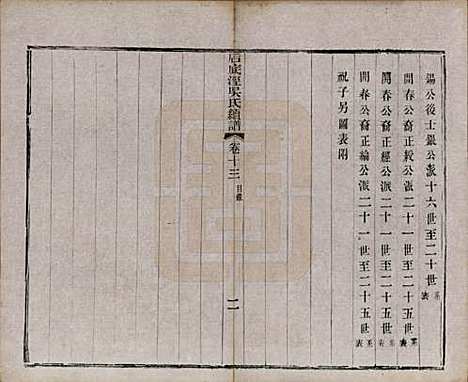 錫公後士銀公派十六世至二十世系表
開春公裔正毅公派二十一世至二十五世系表
開春公裔正經公派二十一世至二十五世系表
開春公裔正綸公派二十一世至二十五世系表
祝子另圖表附
后底涇吳氏續譜
卷十三
目錄
二